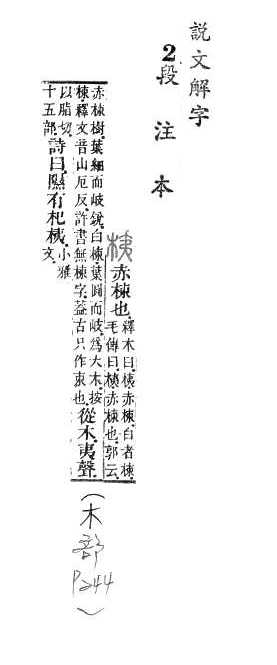 說文解字
2段注本
桋 赤梀也。釋木曰。桋赤梀。白者梀。
毛傳曰。桋赤梀也。郭云。
赤梀樹葉細而岐銳。白梀葉圓而岐。爲大木。按
梀釋文音山厄反。許書無梀字。葢古只作朿也。從木。夷聲。
以脂切。
十五部。詩曰。隰有杞桋。小雅
文。
(木部
P244)